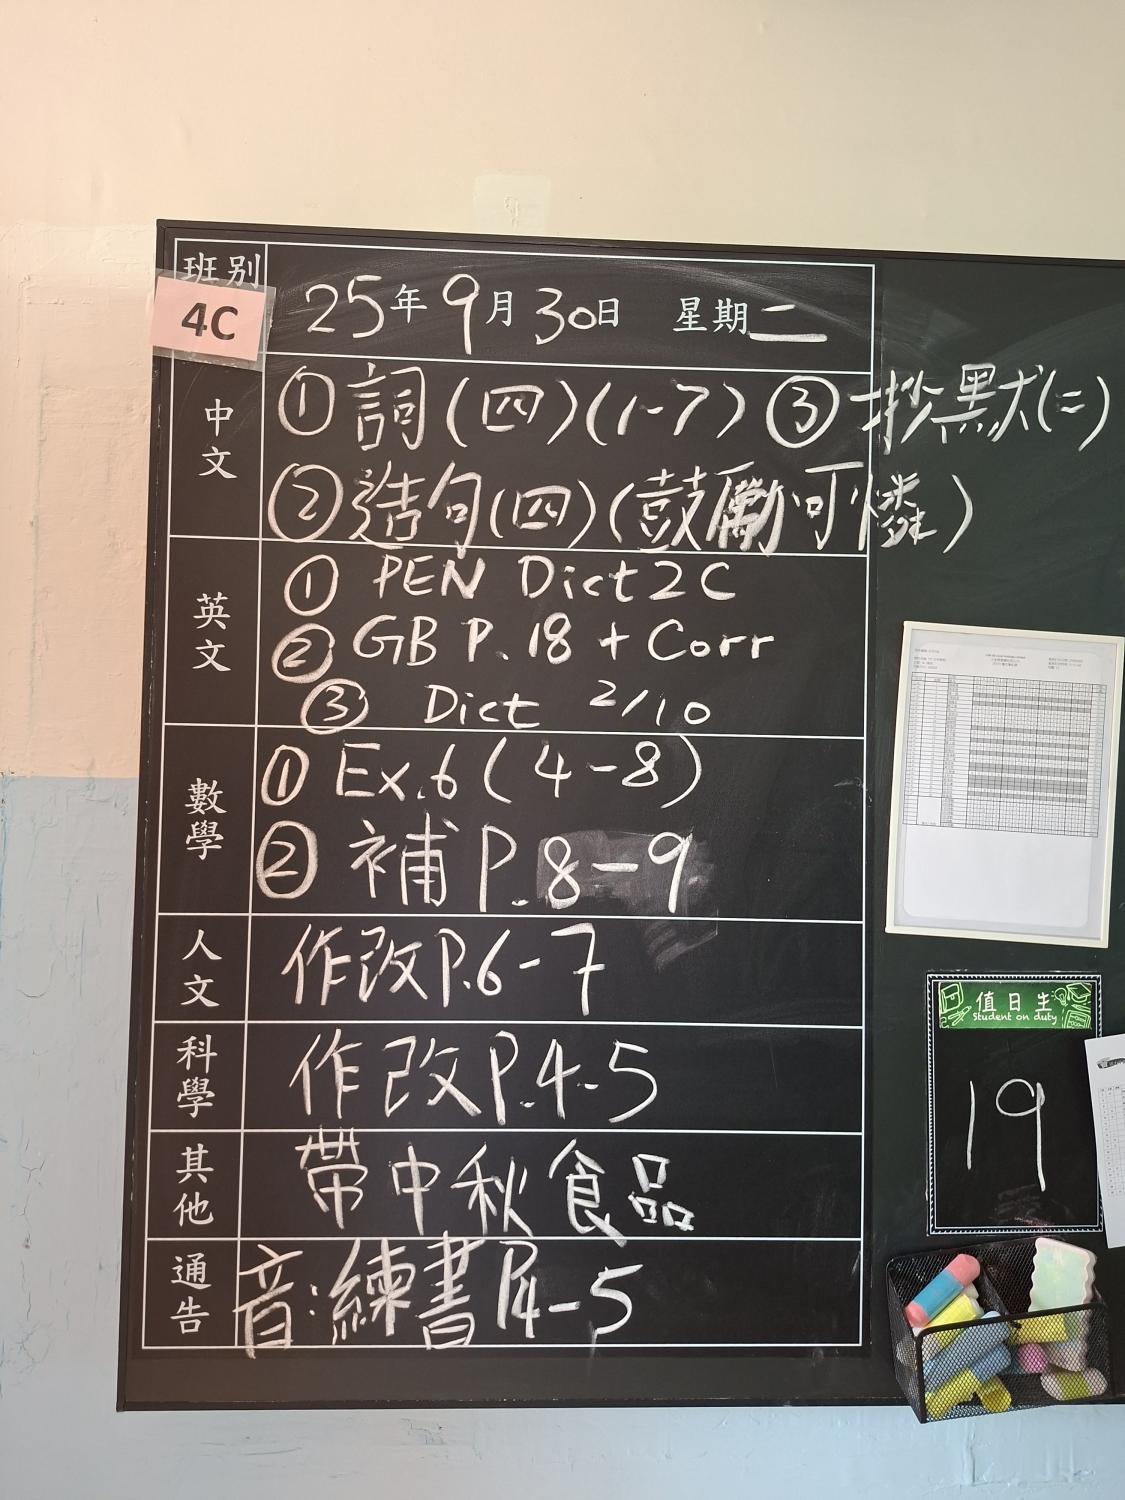 班別
4C
25年9月30日 星期二
中文
① 詞(四)(1-7) ③ 抄默(二)
② 造句(四)(鼓勵、可憐)
英文
① PEN Dict 2C
② GB P.18 + Corr
③ Dict 2/10
數學
① Ex.6 (4-8)
② 補 P.8-9
人文
作改P.6-7
科學
作改P.4-5
其他
帶中秋食品
通告
音:練書P4-5
值日生
Student on duty
19